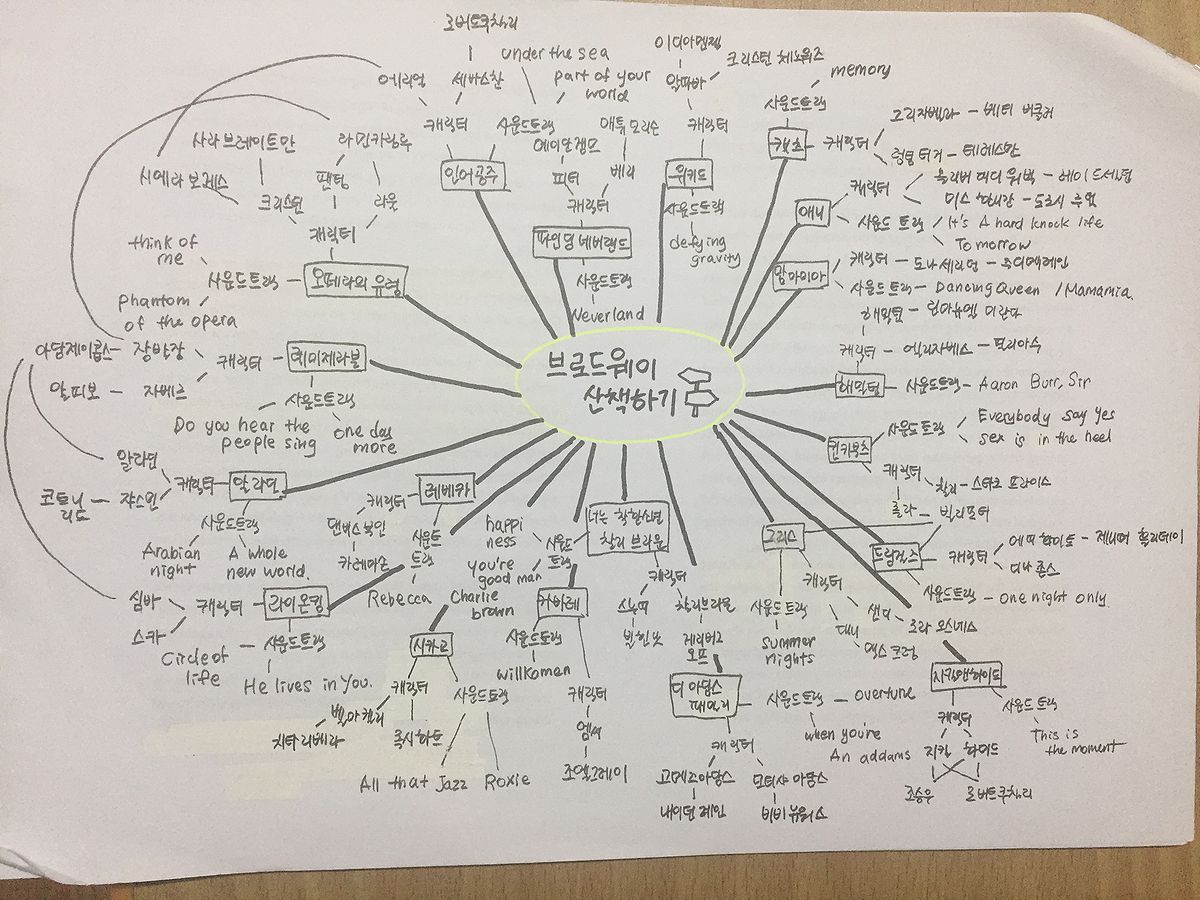 브로드웨이
산책하기
로버트쿠차리
에리얼
세바스찬
under the sea
part of your
world
캐릭터
사운드트랙
인어공주
이디아멘젤
크리스틴 체노웨즈
알파바
캐릭터
위키드
사운드트랙
defying
gravity
memory
사운드트랙
캣츠
캐릭터
그리자벨라 - 베티 버클리
럼 텀 터거 - 테레스만
매튜 모리슨
피터
베리
캐릭터
파인딩 네버랜드
사운드트랙
Neverland
애니
캐릭터
올리버 머디 워벅
도로시 루덤
사운드 트랙
It's A hard knock life
Tomorrow
맘마미아
캐릭터 - 도나 세리던
사운드트랙 - Dancing Queen / Mamamia.
해밀턴 - 린마뉴엘 미란다
캐릭터 - 엘리자베스 - 필리아수
해밀턴
사운드트랙 - Aaron Burr, Sir
킨키부츠
사운드트랙
Everybody say yes
sex is in the heel
캐릭터
찰리 - 스타크 프라이스
롤라 - 빌리포터
드림걸즈
캐릭터
에피 화이트 - 제니퍼 홀리데이
디나 존스
사운드트랙 - One night only.
그리스
사운드트랙
summer
nights
캐릭터
대니
샌디
맥스 크럼
로라 오스네스
지킬앤하이드
캐릭터
지킬
하이드
조승우
로버트쿠차리
사운드트랙
This is
the moment
너는 착한사람
찰리 브라운
캐릭터
스누피
찰리브라운
빌 힌낫
게리버그
오프
사운드트랙
happi
ness
you're
good man
Charlie
brown
디 아담스
패밀리
사운드트랙 - overture
when you're
An addams
캐릭터
고메즈아담스
모티샤 아담스
내이던 레인
비비 뉴워스
카바레
사운드트랙
willkomen
캐릭터
엠씨
조엘그레이
시카고
캐릭터
벨마켈리
록시하트
치타리베라
사운드트랙
All that Jazz
Roxie
레베카
캐릭터
댄버스부인
사운드
트랙
Rebecca
라이온킹
캐릭터
심바
스카
사운드트랙
Circle of
life
He lives in you.
알라딘
캐릭터
알라딘
쟈스민
코트니
리드
사운드트랙
Arabian
night
A whole
new world.
레미제라블
캐릭터
장발장
아담제이콥스
자베르
알피보
사운드트랙
Do you hear the
people sing
one day
more
오페라의 유령
캐릭터
크리스틴
팬텀
라울
사라브레이트만
시에라 보게스
라민카림루
사운드트랙
think of
me
phantom
of the opera